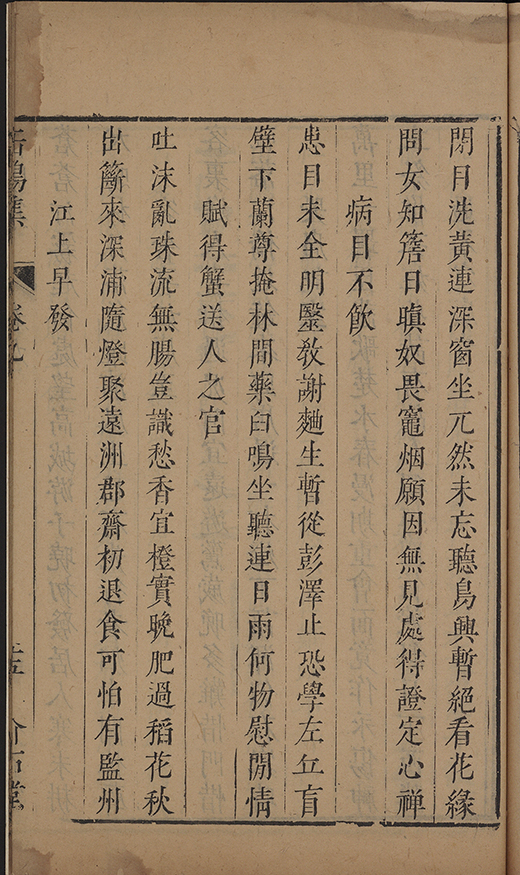 閑日洗黃連深窗坐兀然未忘聽鳥興暫絕看花緣
問女知簷日嗔奴畏竈烟願因無見處得證定心禪
病目不飲
患目未全明醫敎謝麯生暫從彭澤止恐學左丘盲
壁下蘭尊掩林間藥臼鳴坐聽連日雨何物慰閒情
賦得蟹送人之官
吐沫亂珠流無腸豈識愁香宜橙實晚肥過稻花秋
出籪來深浦隨燈聚遠洲郡齋初退食可怕有監州
江上早發
鳴集 卷九 十五 介石堂